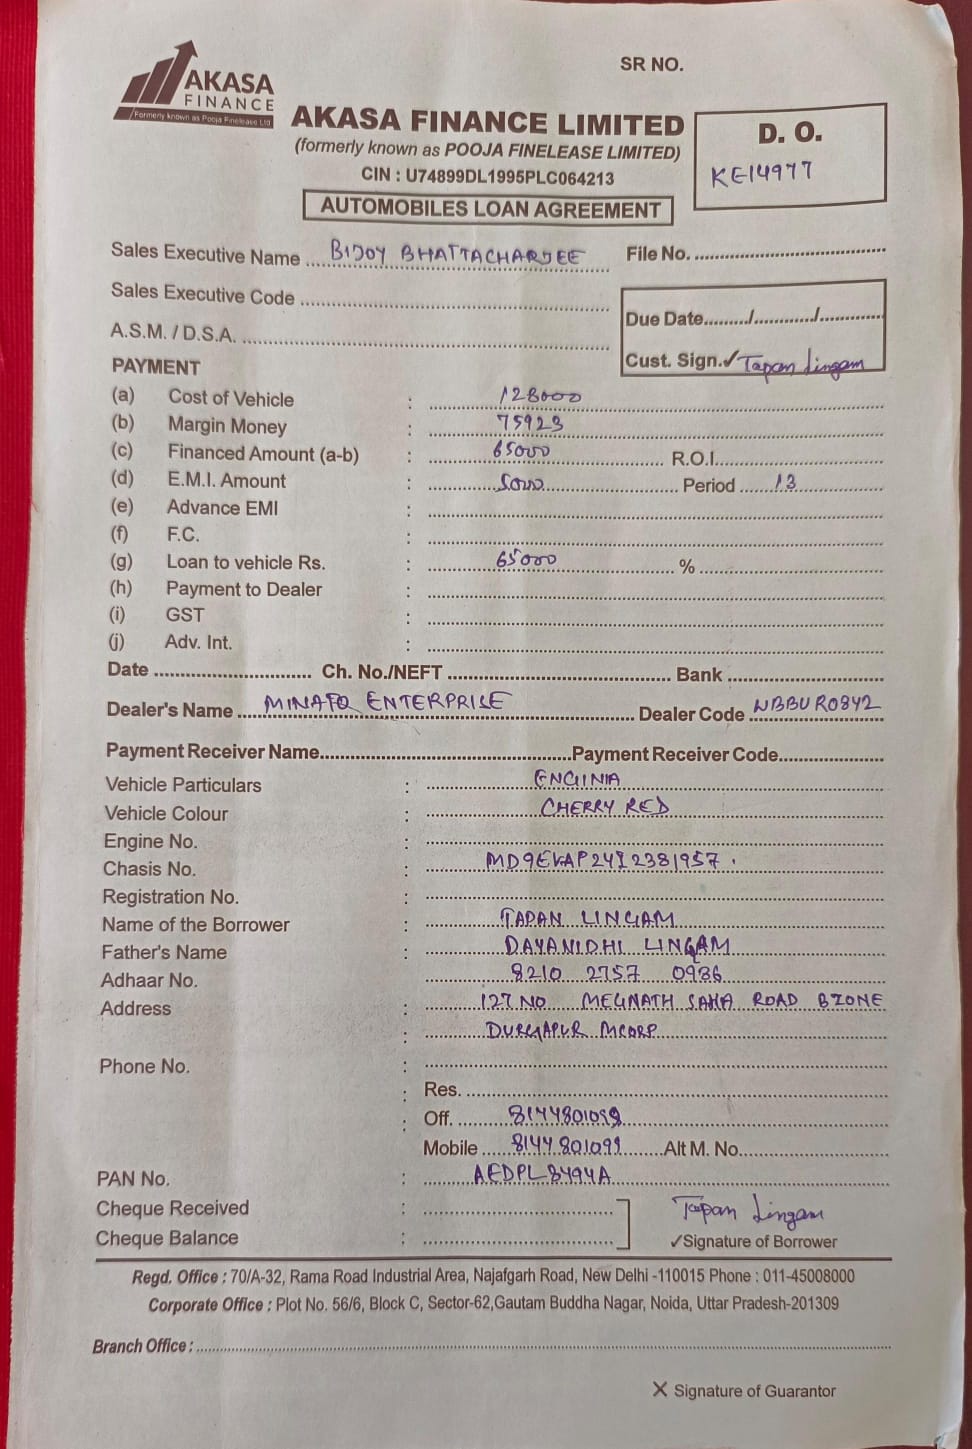 AKASA
FINANCE
Formerly known as Pooja Finelease Ltd.
SR NO.
AKASA FINANCE LIMITED
(formerly known as POOJA FINELEASE LIMITED)
CIN : U74899DL1995PLC064213
AUTOMOBILES LOAN AGREEMENT
D. O.
KE14977
Sales Executive Name BIJOY BHATTACHARJEE File No.
Sales Executive Code
A.S.M. / D.S.A.
Due Date / /
Cust. Sign. ✓ Tapan Lingam
PAYMENT
(a) Cost of Vehicle : 128000
(b) Margin Money : 75923
(c) Financed Amount (a-b) : 65000 R.O.I.
(d) E.M.I. Amount : 5000 Period 13
(e) Advance EMI :
(f) F.C. :
(g) Loan to vehicle Rs. : 65000 %
(h) Payment to Dealer :
(i) GST :
(j) Adv. Int. :
Date Ch. No./NEFT Bank
Dealer's Name ENTERPRISE Dealer Code WBBUR0842
Payment Receiver Name Payment Receiver Code
Vehicle Particulars : ENGINIA
Vehicle Colour : CHERRY RED
Engine No. :
Chasis No. :
Registration No. :
Name of the Borrower : TAPAN LINGAM
Father's Name : DAYANIDHI LINGAM
Adhaar No. : 8210 2757 0986
Address : 127 NO MEGNATH SAHA ROAD BZONE
: DURGAPUR MCORP
Phone No. :
: Res.
: Off. 8144801099
Mobile 8144801099 Alt M. No.
PAN No. : AEDPL8494A
Cheque Received :
Cheque Balance :
Tapan Lingam
✓Signature of Borrower
Regd. Office : 70/A-32, Rama Road Industrial Area, Najafgarh Road, New Delhi -110015 Phone : 011-45008000
Corporate Office : Plot No. 56/6, Block C, Sector-62,Gautam Buddha Nagar, Noida, Uttar Pradesh-201309
Branch Office :
X Signature of Guarantor